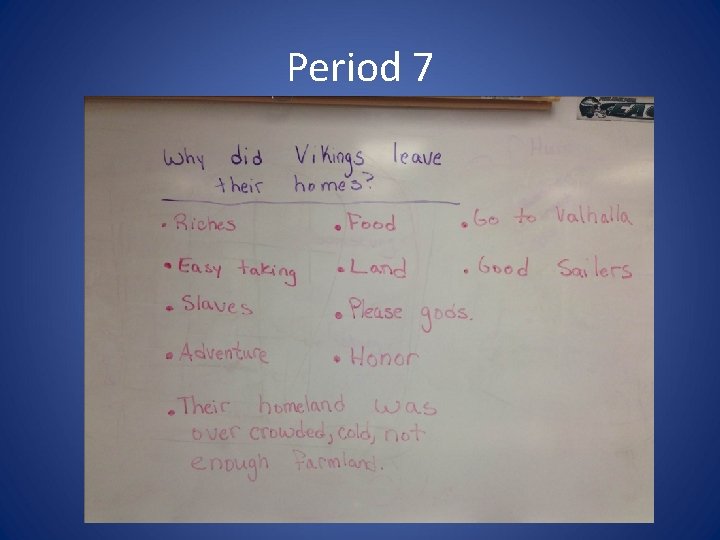 Period 7
Why did Vikings leave
their homes?
• Riches
• Easy taking
• Slaves
• Adventure
• Food
• Land
• Please gods.
• Honor
• Go to Valhalla
• Good Sailers
• Their homeland was
over crowded, cold, not
enough farmland.